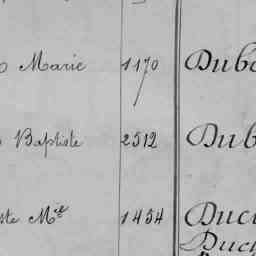 Marie 1170 Dub
Baptiste 2512 Dub
ste Mie 1454 Duc
Duc